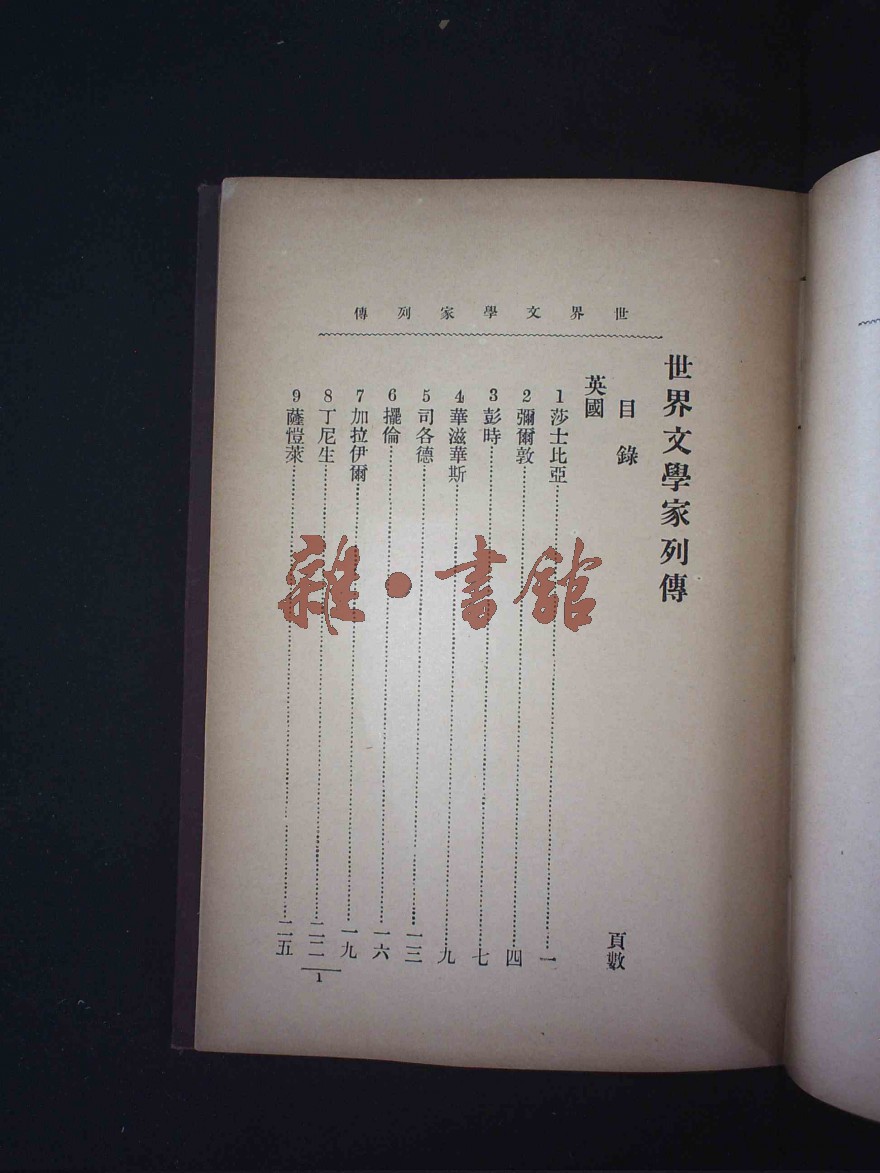 世界文學家列傳
世界文學家列傳
目錄 頁數
英國
1 莎士比亞……一
2 彌爾敦……四
3 彭時……七
4 華滋華斯……九
5 司各德……一三
6 擺倫……一六
7 加拉伊爾……一九
8 丁尼生……二二
9 薩愷萊……二五
1
雜·書館